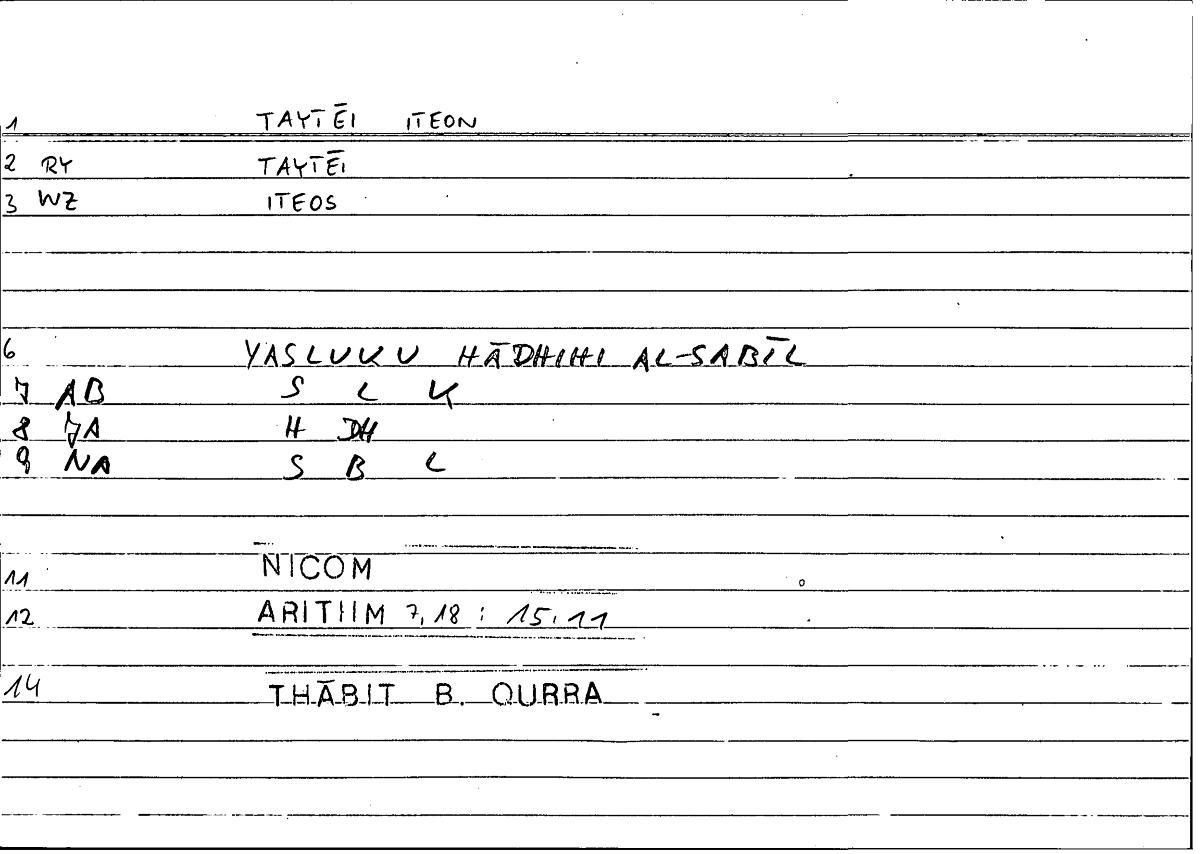 1 TAYTĒI ITEON
2 RY TAYTĒI
3 WZ ITEOS
6 YASLUKU HĀDHIHI AL-SABĪL
7 AB S L K
8 JA H DH
9 NA S B L
11 NICOM
12 ARITIIM 7,18 : 15,11
14 THĀBIT B. QURRA